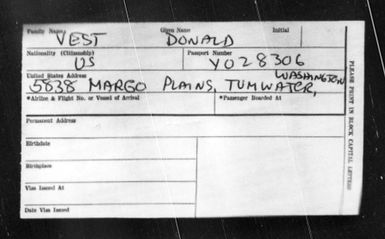 Family Name Given Name Initial
VEST DONALD
Nationality (Citizenship) Passport Number
US Y028306
United States Address WASHINGTON
5838 MARGO PLAINS, TUMWATER,
*Airline & Flight No. or Vessel of Arrival *Passenger Boarded At
Permanent Address
Birthdate
Birthplace
Visa Issued At
Date Visa Issued
PLEASE PRINT IN BLOCK CAPITAL LETTERS